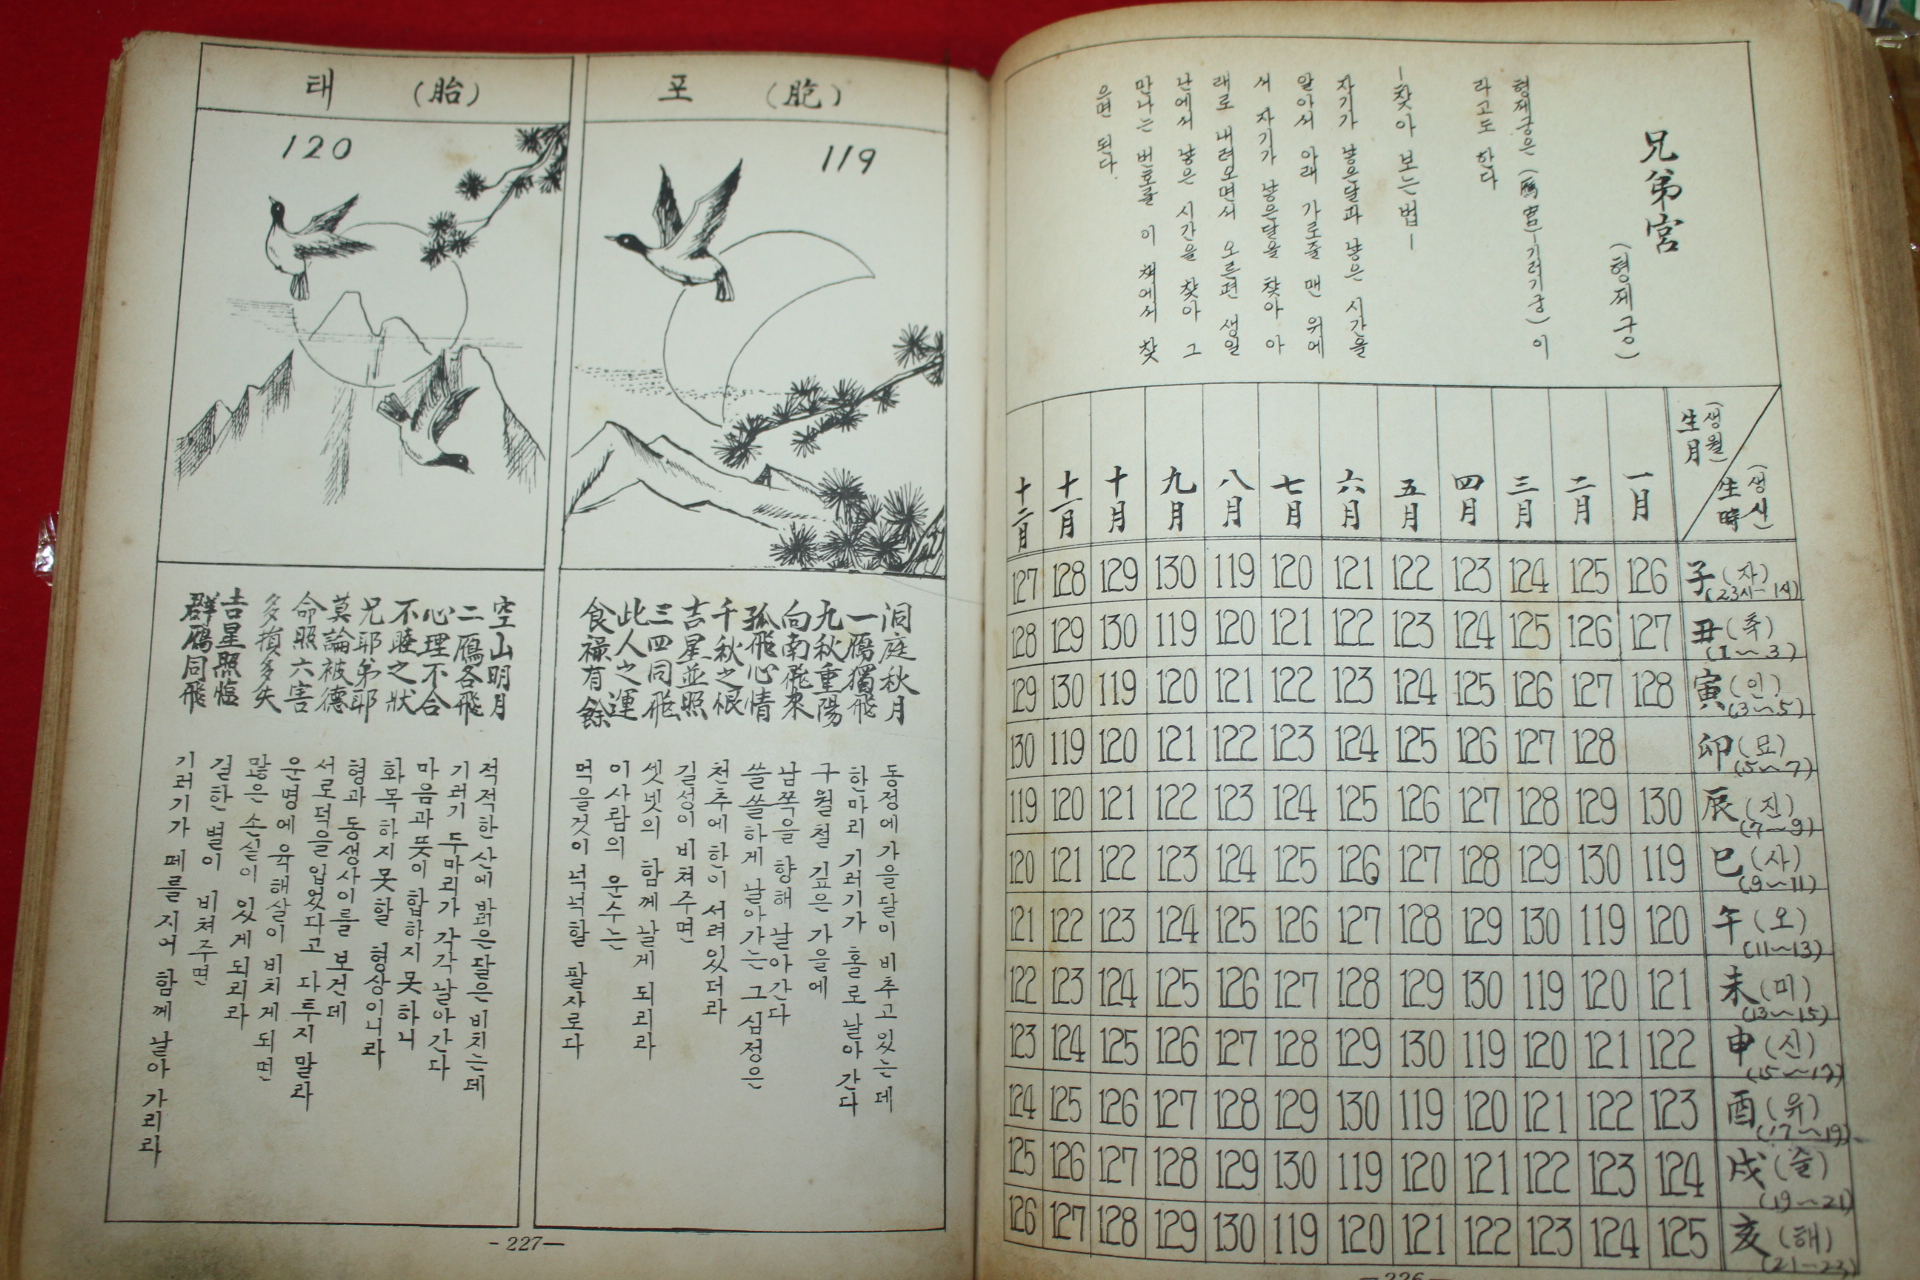 兄弟宮
(형제궁)
형제궁은 (鴈宮-기러기궁)이
라고도 한다
-찾아 보는법-
자기가 낳은달과 낳은 시간을
알아서 아래 가로줄 맨 위에
서 자기가 낳은달을 찾아 아
래로 내려오면서 오른편 생일
난에서 낳은 시간을 찾아 그
만나는 번호를 이 책에서 찾
으면 된다.
生月 (생월) 生時 (생시) 一月 二月 三月 四月 五月 六月 七月 八月 九月 十月 十一月 十二月
子(자) (23시~1시) 126 125 124 123 122 121 120 119 130 129 128 127
丑(축) (1~3) 127 126 125 124 123 122 121 120 119 130 129 128
寅(인) (3~5) 128 127 126 125 124 123 122 121 120 119 130 129
卯(묘) (5~7) 128 127 126 125 124 123 122 121 120 119 130
辰(진) (7~9) 130 129 128 127 126 125 124 123 122 121 120 119
巳(사) (9~11) 119 130 129 128 127 126 125 124 123 122 121 120
午(오) (11~13) 120 119 130 129 128 127 126 125 124 123 122 121
未(미) (13~15) 121 120 119 130 129 128 127 126 125 124 123 122
申(신) (15~17) 122 121 120 119 130 129 128 127 126 125 124 123
酉(유) (17~19) 123 122 121 120 119 130 129 128 127 126 125 124
戌(술) (19~21) 124 123 122 121 120 119 130 129 128 127 126 125
亥(해) (21~23) 125 124 123 122 121 120 119 130 129 128 127 126
-226-
포 (胞)
119
洞庭秋月
一鴈獨飛
九秋重陽
向南飛來
孤飛心情
千秋之恨
吉星並照
三四同飛
此人之運
食祿有餘
동정에 가을달이 비추고있는데
한마리 기러기가 홀로 날아간다
구월철 깊은 가을에
남쪽을 향해 날아간다
쓸쓸하게 날아가는 그심정은
천추에 한이 서려있더라
길성이 비쳐주면
셋넷의 함께 날게 되리라
이사람의 운수는
먹을것이 넉넉할 팔자로다
태 (胎)
120
空山明月
二鴈各飛
心理不合
不睦之狀
兄耶弟耶
莫論被德
命照六害
多損多失
吉星照臨
群鴈同飛
적적한산에 밝은달은 비치는데
기러기 두마리가 각각 날아간다
마음과 뜻이 합하지 못하니
화목하지 못할 형상이니라
형과 동생사이를 보건데
서로덕을 입었다고 다투지 말라
운명에 육해살이 비치게 되면
많은 손실이 있게되리라
길한 별이 비쳐주면
기러기가 떼를 지어 함께 날아 가리라
-227-